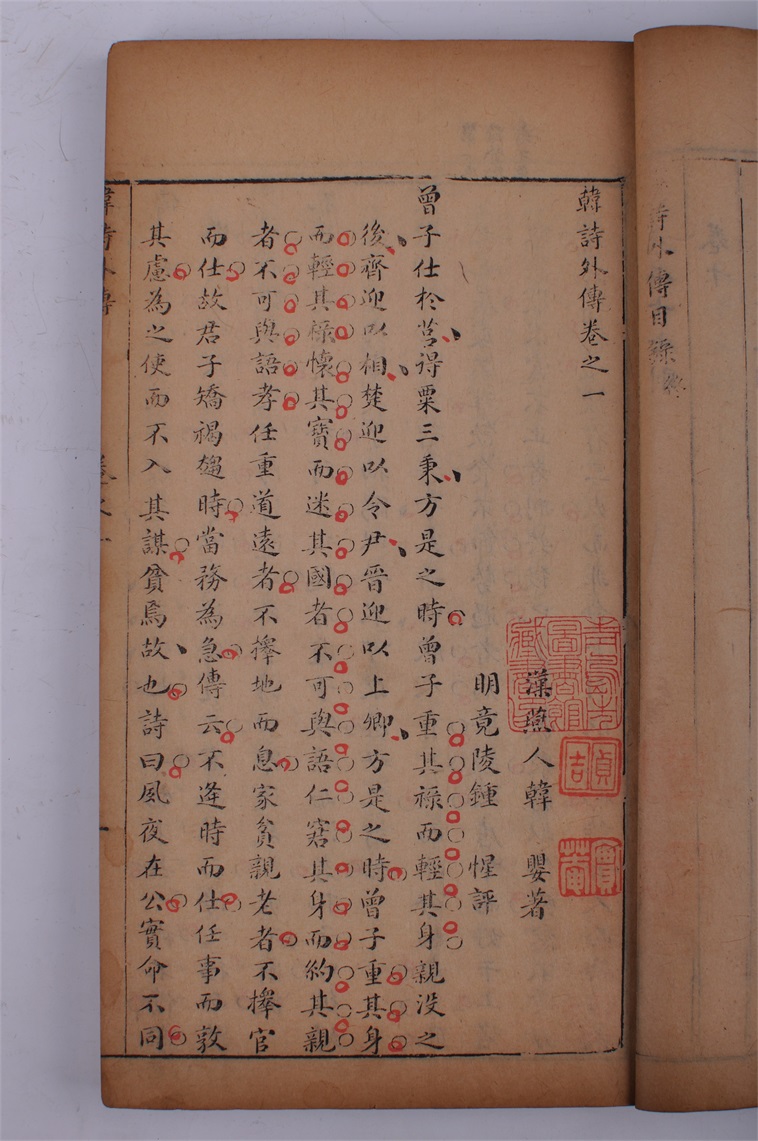 詩外傳目錄
韓詩外傳卷之一
漢燕人韓嬰著
明竟陵鍾惺評
曾子仕於莒得粟三秉方是之時曾子重其祿而輕其身親没之
後齊迎以相楚迎以令尹晉迎以上卿方是之時曾子重其身
而輕其祿懷其寶而迷其國者不可與語仁窘其身而約其親
者不可與語孝任重道遠者不擇地而息家貧親老者不擇官
而仕故君子矯褐趨時當務為急傳云不逢時而仕任事而敦
其慮為之使而不入其謀貧焉故也詩曰夙夜在公實命不同
韓詩外傳
貞吉